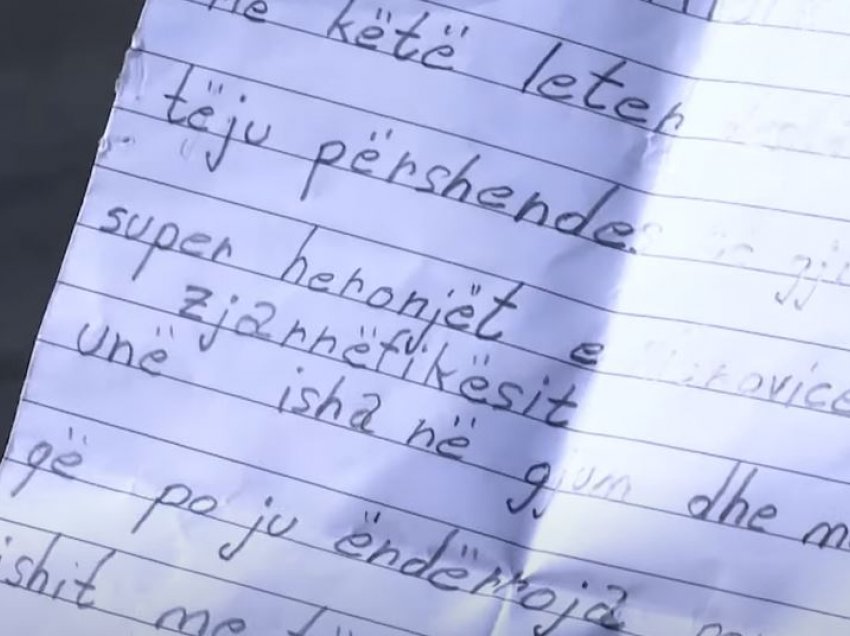 me këtë leter
tëju përshendes gji
super heronjët e Mitrovicë
zjarrnëfikësit
unë isha në gjum dhe m
që po ju ëndërroja
ishit me